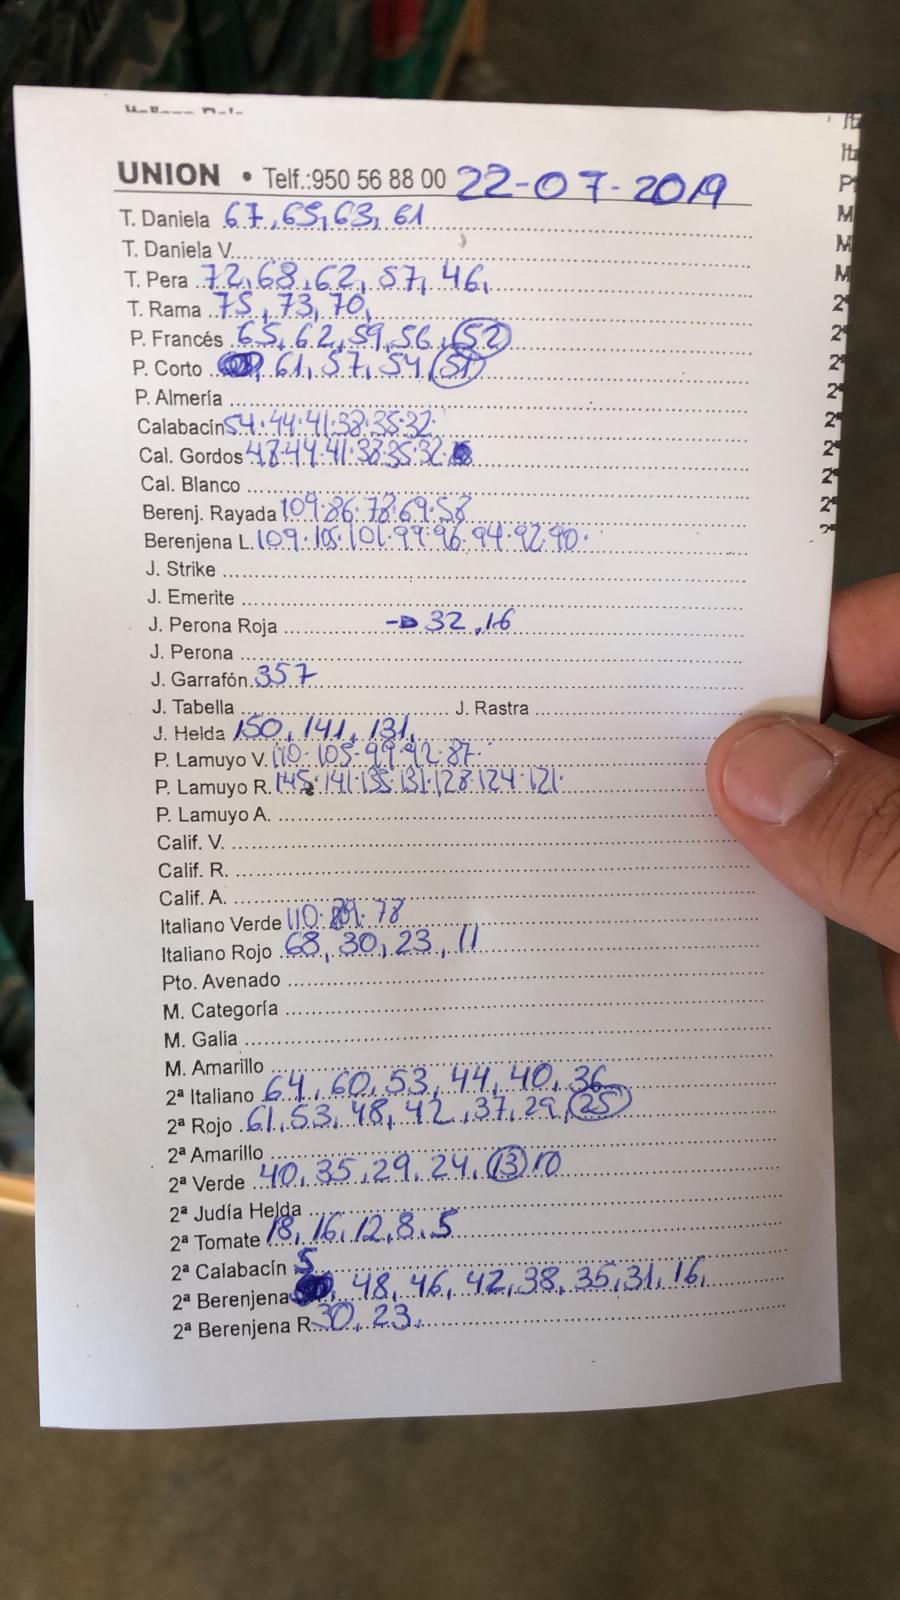 UNION • Telf.:950 56 88 00 22-07-2019
T. Daniela 67, 65, 63, 61
T. Daniela V.
T. Pera 72, 68, 62, 57, 46,
T. Rama 75, 73, 70,
P. Francés 65, 62, 59, 56, 52
P. Corto 61, 57, 54, 51
P. Almería
Calabacín 54·44·41·38·35·32·
Cal. Gordos 47·44·41·38·35·32·
Cal. Blanco
Berenj. Rayada 109·86·78·69·58
Berenjena L. 109·105·101·99·96·94·92·90·
J. Strike
J. Emerite
J. Perona Roja → 32, 16
J. Perona
J. Garrafón 357
J. Tabella J. Rastra
J. Helda 150, 141, 131,
P. Lamuyo V. 110·105·99·92·87·
P. Lamuyo R. 145·141·135·131·128·124·121·
P. Lamuyo A.
Calif. V.
Calif. R.
Calif. A.
Italiano Verde 110· 78
Italiano Rojo 68, 30, 23, 11
Pto. Avenado
M. Categoría
M. Galia
M. Amarillo
2ª Italiano 64, 60, 53, 44, 40, 36
2ª Rojo 61, 53, 48, 42, 37, 29, 25
2ª Amarillo
2ª Verde 40, 35, 29, 24, 13 10
2ª Judía Helda
2ª Tomate 18, 16, 12, 8, 5
2ª Calabacín 5
2ª Berenjena 48, 46, 42, 38, 35, 31, 16,
2ª Berenjena R. 30, 23,